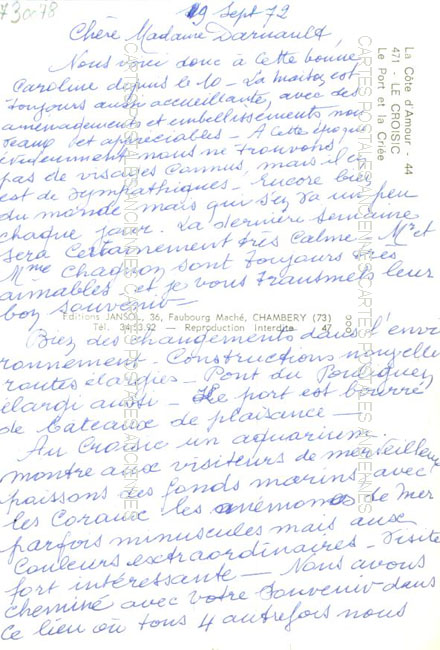 73cc78
19 Sept 72
Chère Madame Darnault,
Nous voici donc à cette bonne
Caroline depuis le 10 - La maison est
toujours aussi accueillante, avec des
aménagements et embellissements nou
veaux et appréciables - A cette époque
évidemment nous ne trouvons
pas de visages connus, mais il en
est de sympathiques - Encore bien
du monde mais qui s'en va un peu
chaque jour. La dernière semaine
sera certainement très calme. Mr et
Mme Chadron sont toujours très
aimables et je vous transmets leur
bon souvenir -
Editions JANSOL, 36, Faubourg Maché, CHAMBERY (73)
Tél. 34.53.92 — Reproduction Interdite 47
Bien des changements dans l'envi
ronnement - Constructions nouvelles
routes élargies - Pont du Pouliguen
élargi aussi - Le port est bourré
de bateaux de plaisance -
Au Croisic un aquarium
montre aux visiteurs de merveilleux
poissons des fonds marins avec
les coraux les anémones de mer
parfois minuscules mais aux
couleurs extraordinaires - Visite
fort intéressante - Nous avons
cheminé avec votre souvenir dans
ce lieu où tous 4 autrefois nous
La Côte d'Amour - 44
471 - LE CROISIC
Le Port et la Criée